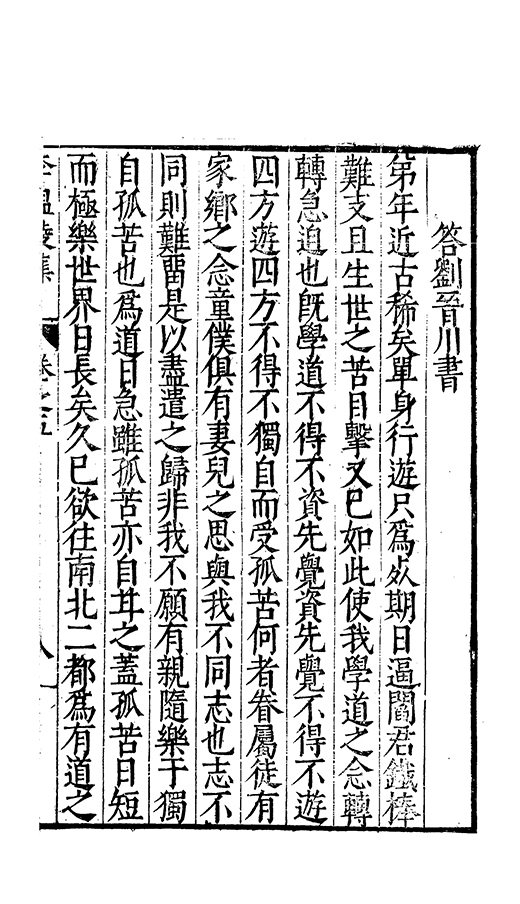 答劉晉川書
第年近古稀矣單身行遊只爲死期日逼閻君鐵棒
難支且生世之苦目擊又已如此使我學道之念轉
轉急迫也既學道不得不資先覺資先覺不得不遊
四方遊四方不得不獨自而受孤苦何者眷屬徒有
家鄉之念童僕俱有妻兒之思與我不同志也志不
同則難留是以盡遣之歸非我不願有親隨樂于獨
自孤苦也爲道日急雖孤苦亦自甘之蓋孤苦日短
而極樂世界日長矣久已欲往南北二都爲有道之
李溫陵集 卷之五 八